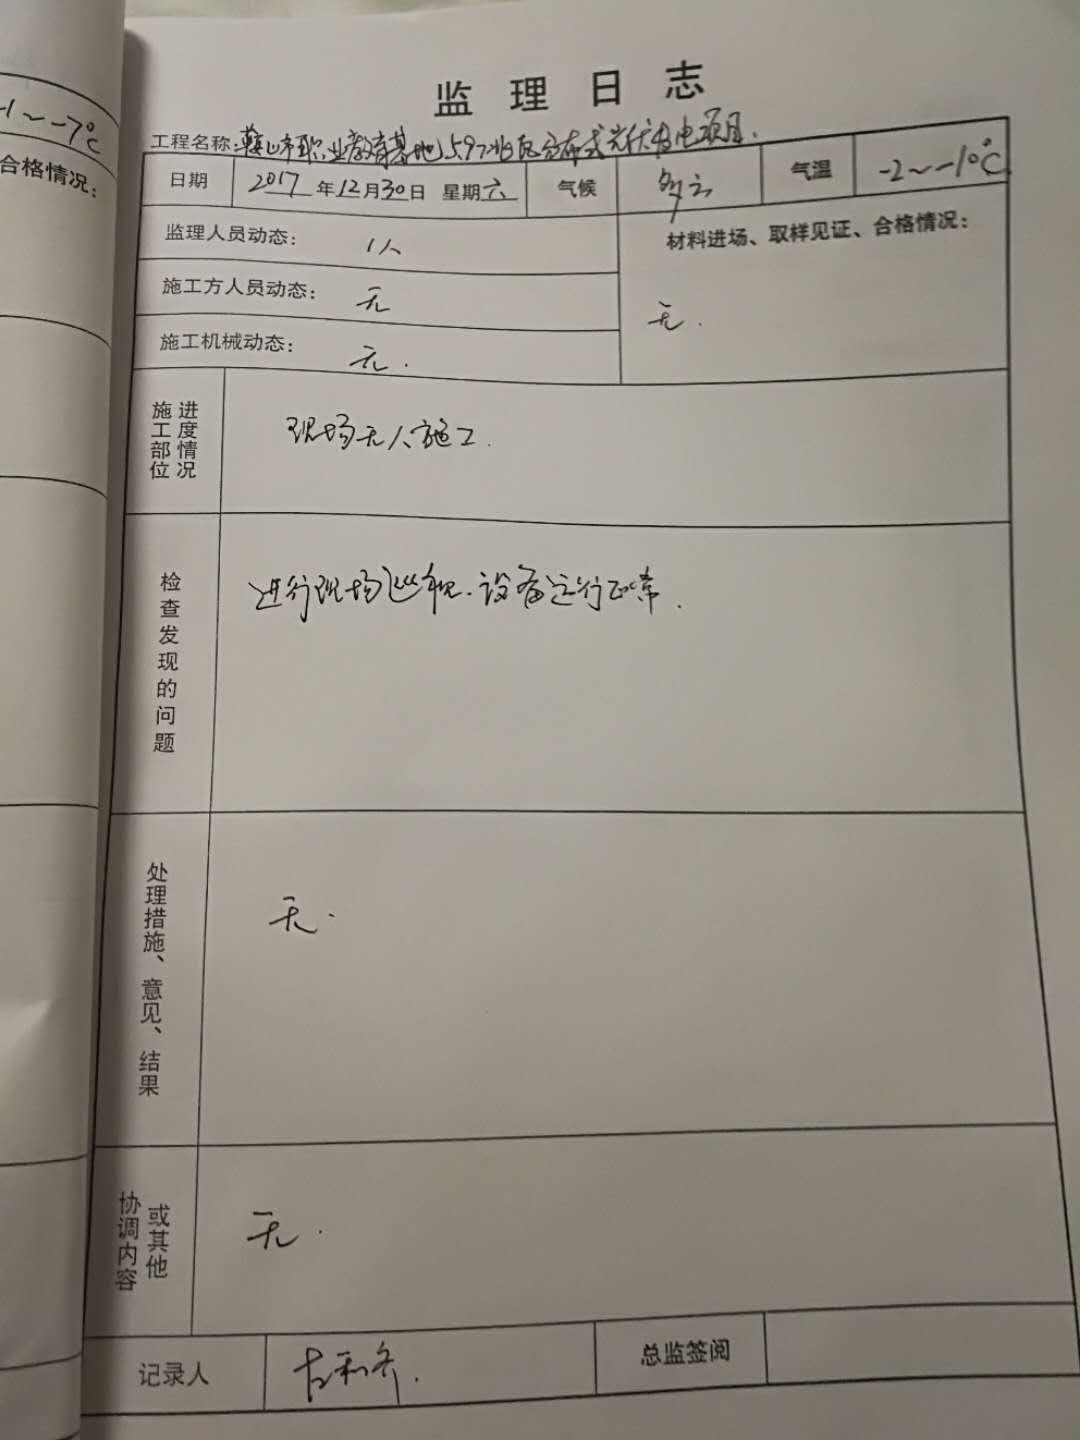 -1～-7℃
合格情况：
监理日志
工程名称：鞍山市职业教育基地5.97兆瓦分布式光伏发电项目.
日期 2017年12月30日 星期六 气候 多云 气温 -2～-10℃
监理人员动态： 1人
材料进场、取样见证、合格情况：
施工方人员动态： 无
无.
施工机械动态： 无.
施工部位
进度情况
现场无人施工.
检查发现的问题
进行现场巡视.设备运行正常.
处理措施、意见、结果
无.
协调内容
或其他
无.
记录人
总监签阅